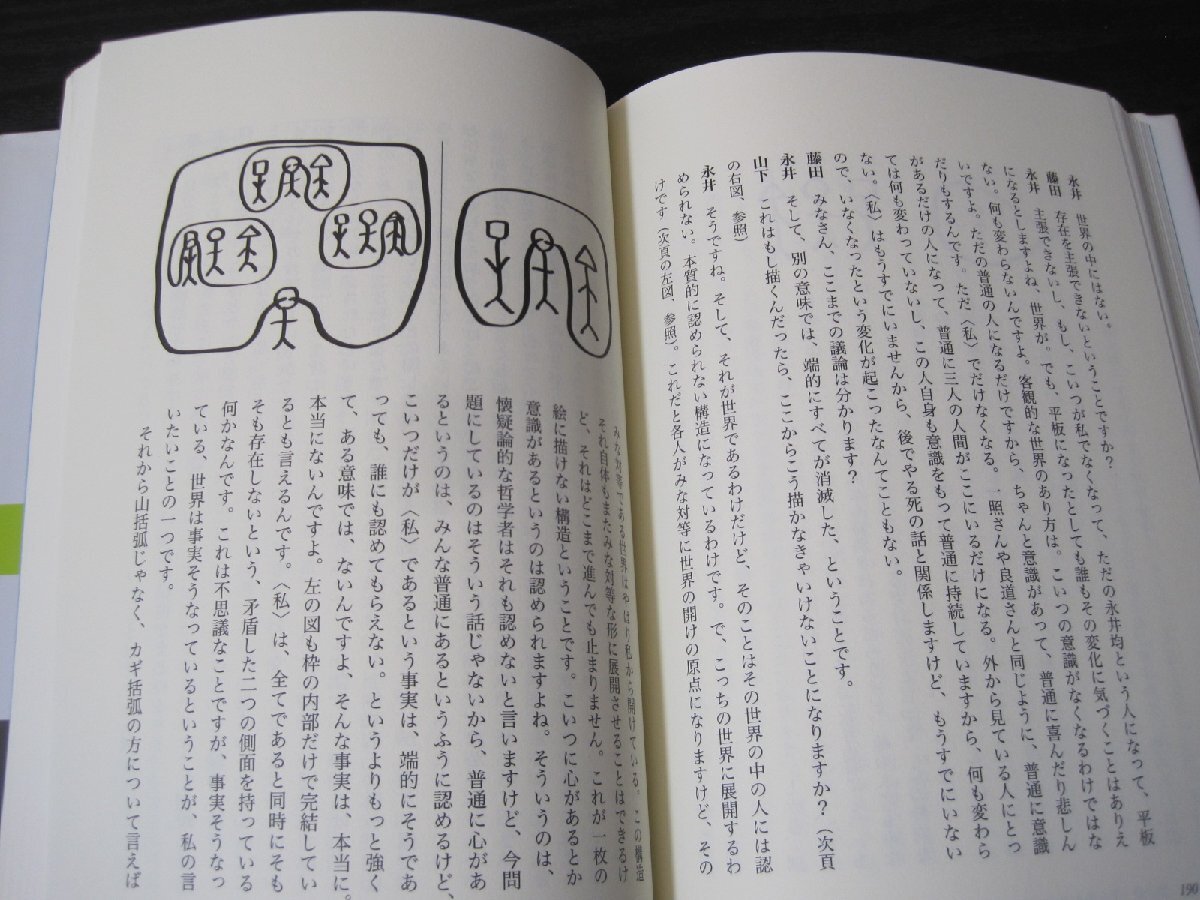 永井　世界の中にはない。
藤田　存在を主張できないということですか?
永井　主張できないし、もし、こいつが私でなくなって、ただの永井均という人になって、平板
になるとしますよね、世界が。でも、平板になったとしても誰もその変化に気づくことはありえ
ない。何も変わらないんですよ。客観的な世界のあり方は。こいつの意識がなくなるわけではな
いですよ。ただの普通の人になるだけですから、ちゃんと意識があって、普通に喜んだり悲しん
だりもするんです。ただ〈私〉でだけなくなる。一照さんや良道さんと同じように、普通に意識
があるだけの人になって、普通に三人の人間がここにいるだけになる。外から見ている人にとっ
ては何も変わっていないし、この人自身も意識をもって普通に持続していますから、何も変わら
ない。〈私〉はもうすでにいませんから、後でやる死の話と関係しますけど、もうすでにいない
ので、いなくなったという変化が起こったなんてこともない。
藤田　みなさん、ここまでの議論は分かります?
永井　そして、別の意味では、端的にすべてが消滅した、ということです。
山下　これはもし描くんだったら、ここからこう描かなきゃいけないことになりますか?(次頁
の右図、参照)
永井　そうですね。そして、それが世界であるわけだけど、そのことはその世界の中の人には認
められない。本質的に認められない構造になっているわけです。で、こっちの世界に展開するわ
けです(次頁の左図、参照)。これだと各人がみな対等に世界の開けの原点になりますけど、その
190
みな対等である世界はやはり私から開けている。この構造
それ自体もまたみな対等な形に展開させることはできるけ
ど、それはどこまで進んでも止まりません。これが一枚の
絵に描けない構造ということです。こいつに心があるとか
意識があるというのは認められますよね。そういうのは、
懐疑論的な哲学者はそれも認めないと言いますけど、今問
題にしているのはそういう話じゃないから、普通に心があ
るというのは、みんな普通にあるというふうに認めるけど、
こいつだけが〈私〉であるという事実は、端的にそうであ
っても、誰にも認めてもらえない。というよりもっと強く
て、ある意味では、ないんですよ、そんな事実は、本当に。
本当にないんですよ。左の図も枠の内部だけで完結してい
るとも言えるんです。〈私〉は、全てであると同時にそも
そも存在しないという、矛盾した二つの側面を持っている
何かなんです。これは不思議なことですが、事実そうなっ
ている、世界は事実そうなっているということが、私の言
いたいことの一つです。
それから山括弧じゃなく、カギ括弧の方について言えば